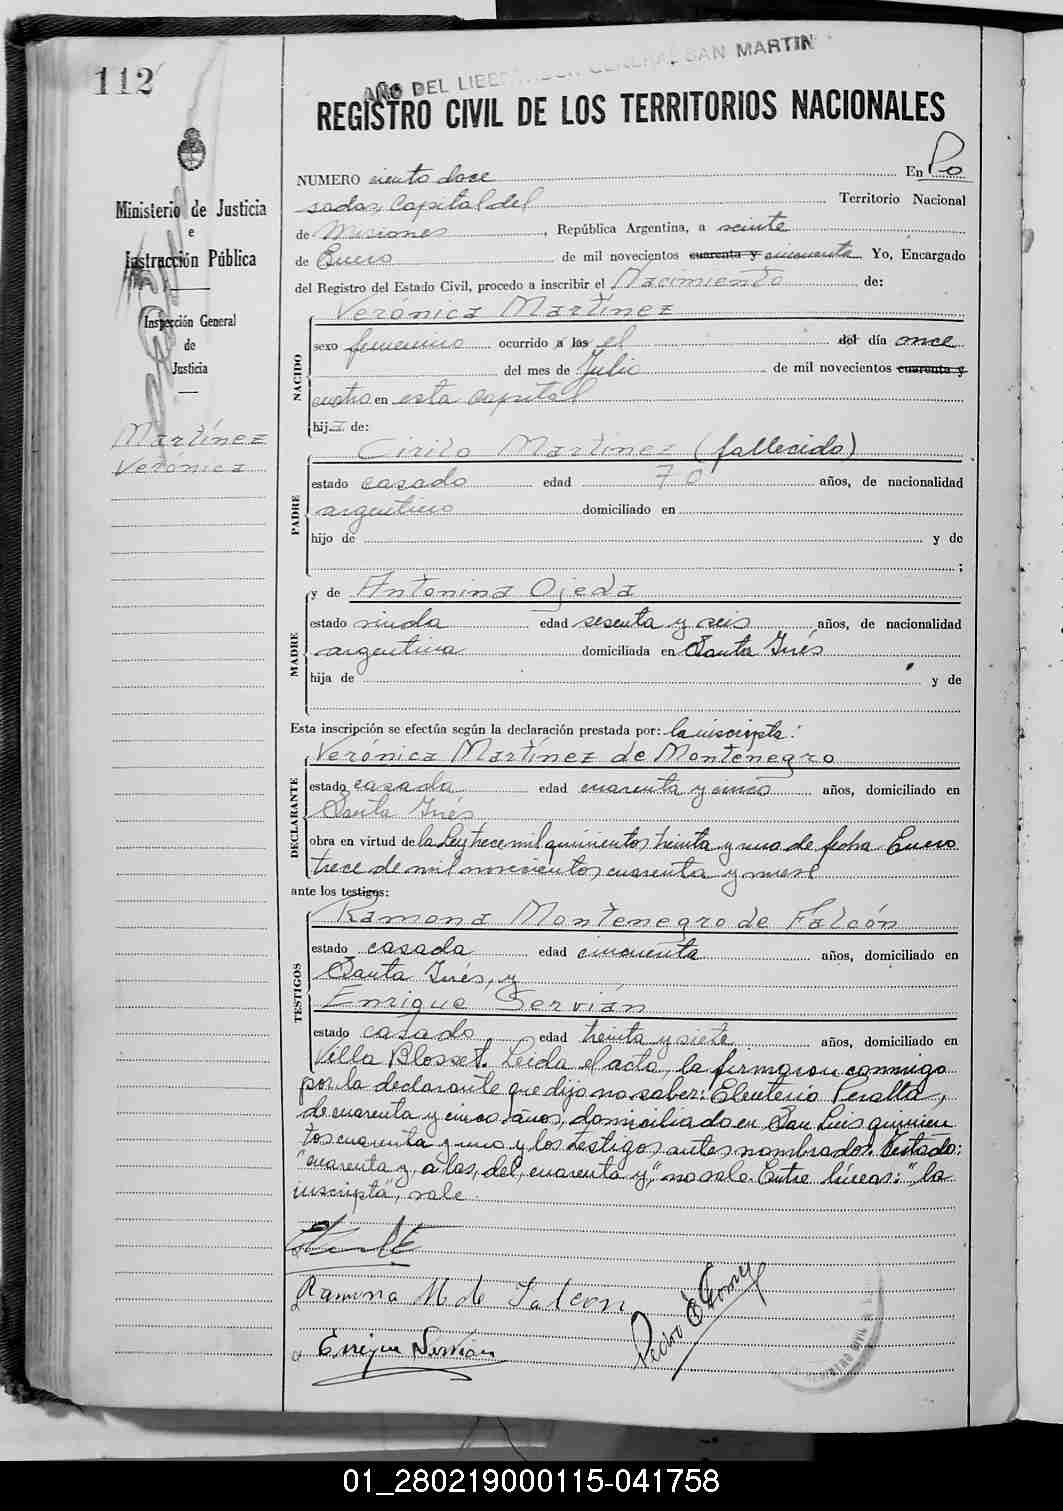 112
AÑO DEL LIBERTADOR GENERAL SAN MARTIN
REGISTRO CIVIL DE LOS TERRITORIOS NACIONALES
Ministerio de Justicia
e
Instrucción Pública
Inspección General
de
Justicia
Martínez
Verónica
NUMERO ciento doce En Po
sadas, Capital del Territorio Nacional
de Misiones, República Argentina, a veinte
de Enero de mil novecientos cuarenta y cincuenta Yo, Encargado
del Registro del Estado Civil, procedo a inscribir el Nacimiento de:
NACIDO
Verónica Martínez
sexo femenino ocurrido a las el del día once
del mes de Julio de mil novecientos cuarenta y
cuatro en esta Capital
hija de:
PADRE
Cirilo Martínez (fallecido)
estado casado edad 70 años, de nacionalidad
argentino domiciliado en
hijo de y de
;
MADRE
y de Antonina Ojeda
estado viuda edad sesenta y seis años, de nacionalidad
argentina domiciliada en Santa Inés
hija de y de
Esta inscripción se efectúa según la declaración prestada por: la inscripta:
DECLARANTE
Verónica Martínez de Montenegro
estado casada edad cuarenta y cinco años, domiciliado en
Santa Inés
obra en virtud de la Ley trece mil quinientos treinta y uno de fecha Enero
trece de mil novecientos cuarenta y nueve
ante los testigos:
TESTIGOS
Ramona Montenegro de Falcón
estado casada edad cincuenta años, domiciliado en
Santa Inés, y
Enrique Servián
estado casado edad treinta y siete años, domiciliado en
Villa Blosset. Leída el acta, la firmaron conmigo
por la declarante que dijo no saber: Eleuterio Peralta,
de cuarenta y cinco años, domiciliado en San Luis quinien
tos cuarenta y uno y los testigos antes nombrados. Testado:
"cuarenta y, a las, del, cuarenta y", no vale. Entre líneas: "la
inscripta", vale.
Ramona M de Falcon
Enrique Servian
Pedro
01_280219000115-041758